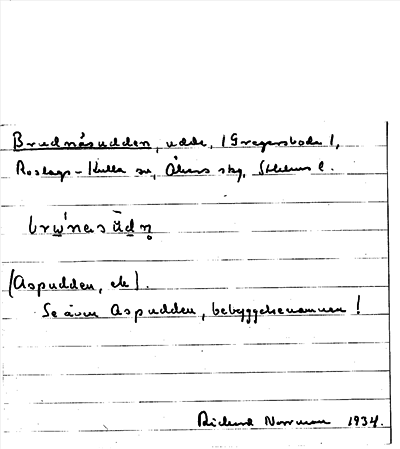 Brudnäsudden, udde, (Gregersboda),
Roslags-Kulla sn, Åkers skg, Sthlms l.
(Aspudden, ek).
Se även Aspudden, bebyggelsenamnen!
Rickard Norrman 1934.